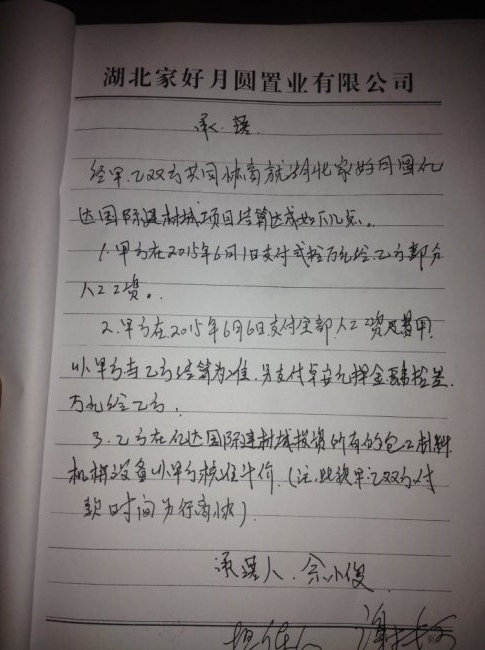 湖北家好月圆置业有限公司
承诺
经甲、乙双方共同协商就湖北家好月圆亿
达国际建材城项目结算达成如下几点。
1.甲方在2015年6月1日支付贰拾万元给乙方部分
人工工资。
2.甲方在2015年6月6日支付全部人工工资及费用,
以甲方与乙方结算为准,另支付 押金 拾
万元给乙方。
3.乙方在亿达国际建材城投资所有的包工材料
机械设备以甲方核准计价.(注:此款甲乙双方付
款日时间另行商协)
承诺人:余小俊
担保人 谢